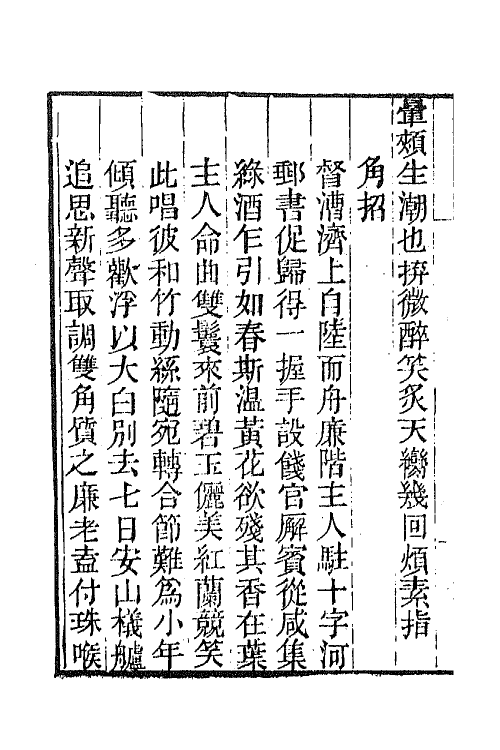 暈頰生潮也拚微醉笑炙天
幾回煩素指
角招
督漕濟上自陸而舟廉階主人駐十字河
郵書促歸得一握手設餞官廨賓從咸集
綠酒乍引如春斯溫黃花欲殘其香在葉
主人命曲雙鬟來前碧玉儷美紅蘭競笑
此唱彼和竹動絲隨宛轉合節難爲小年
傾聽多歡浮以大白別去七日安山檥艫
追思新聲取調雙角質之廉老盍付珠喉